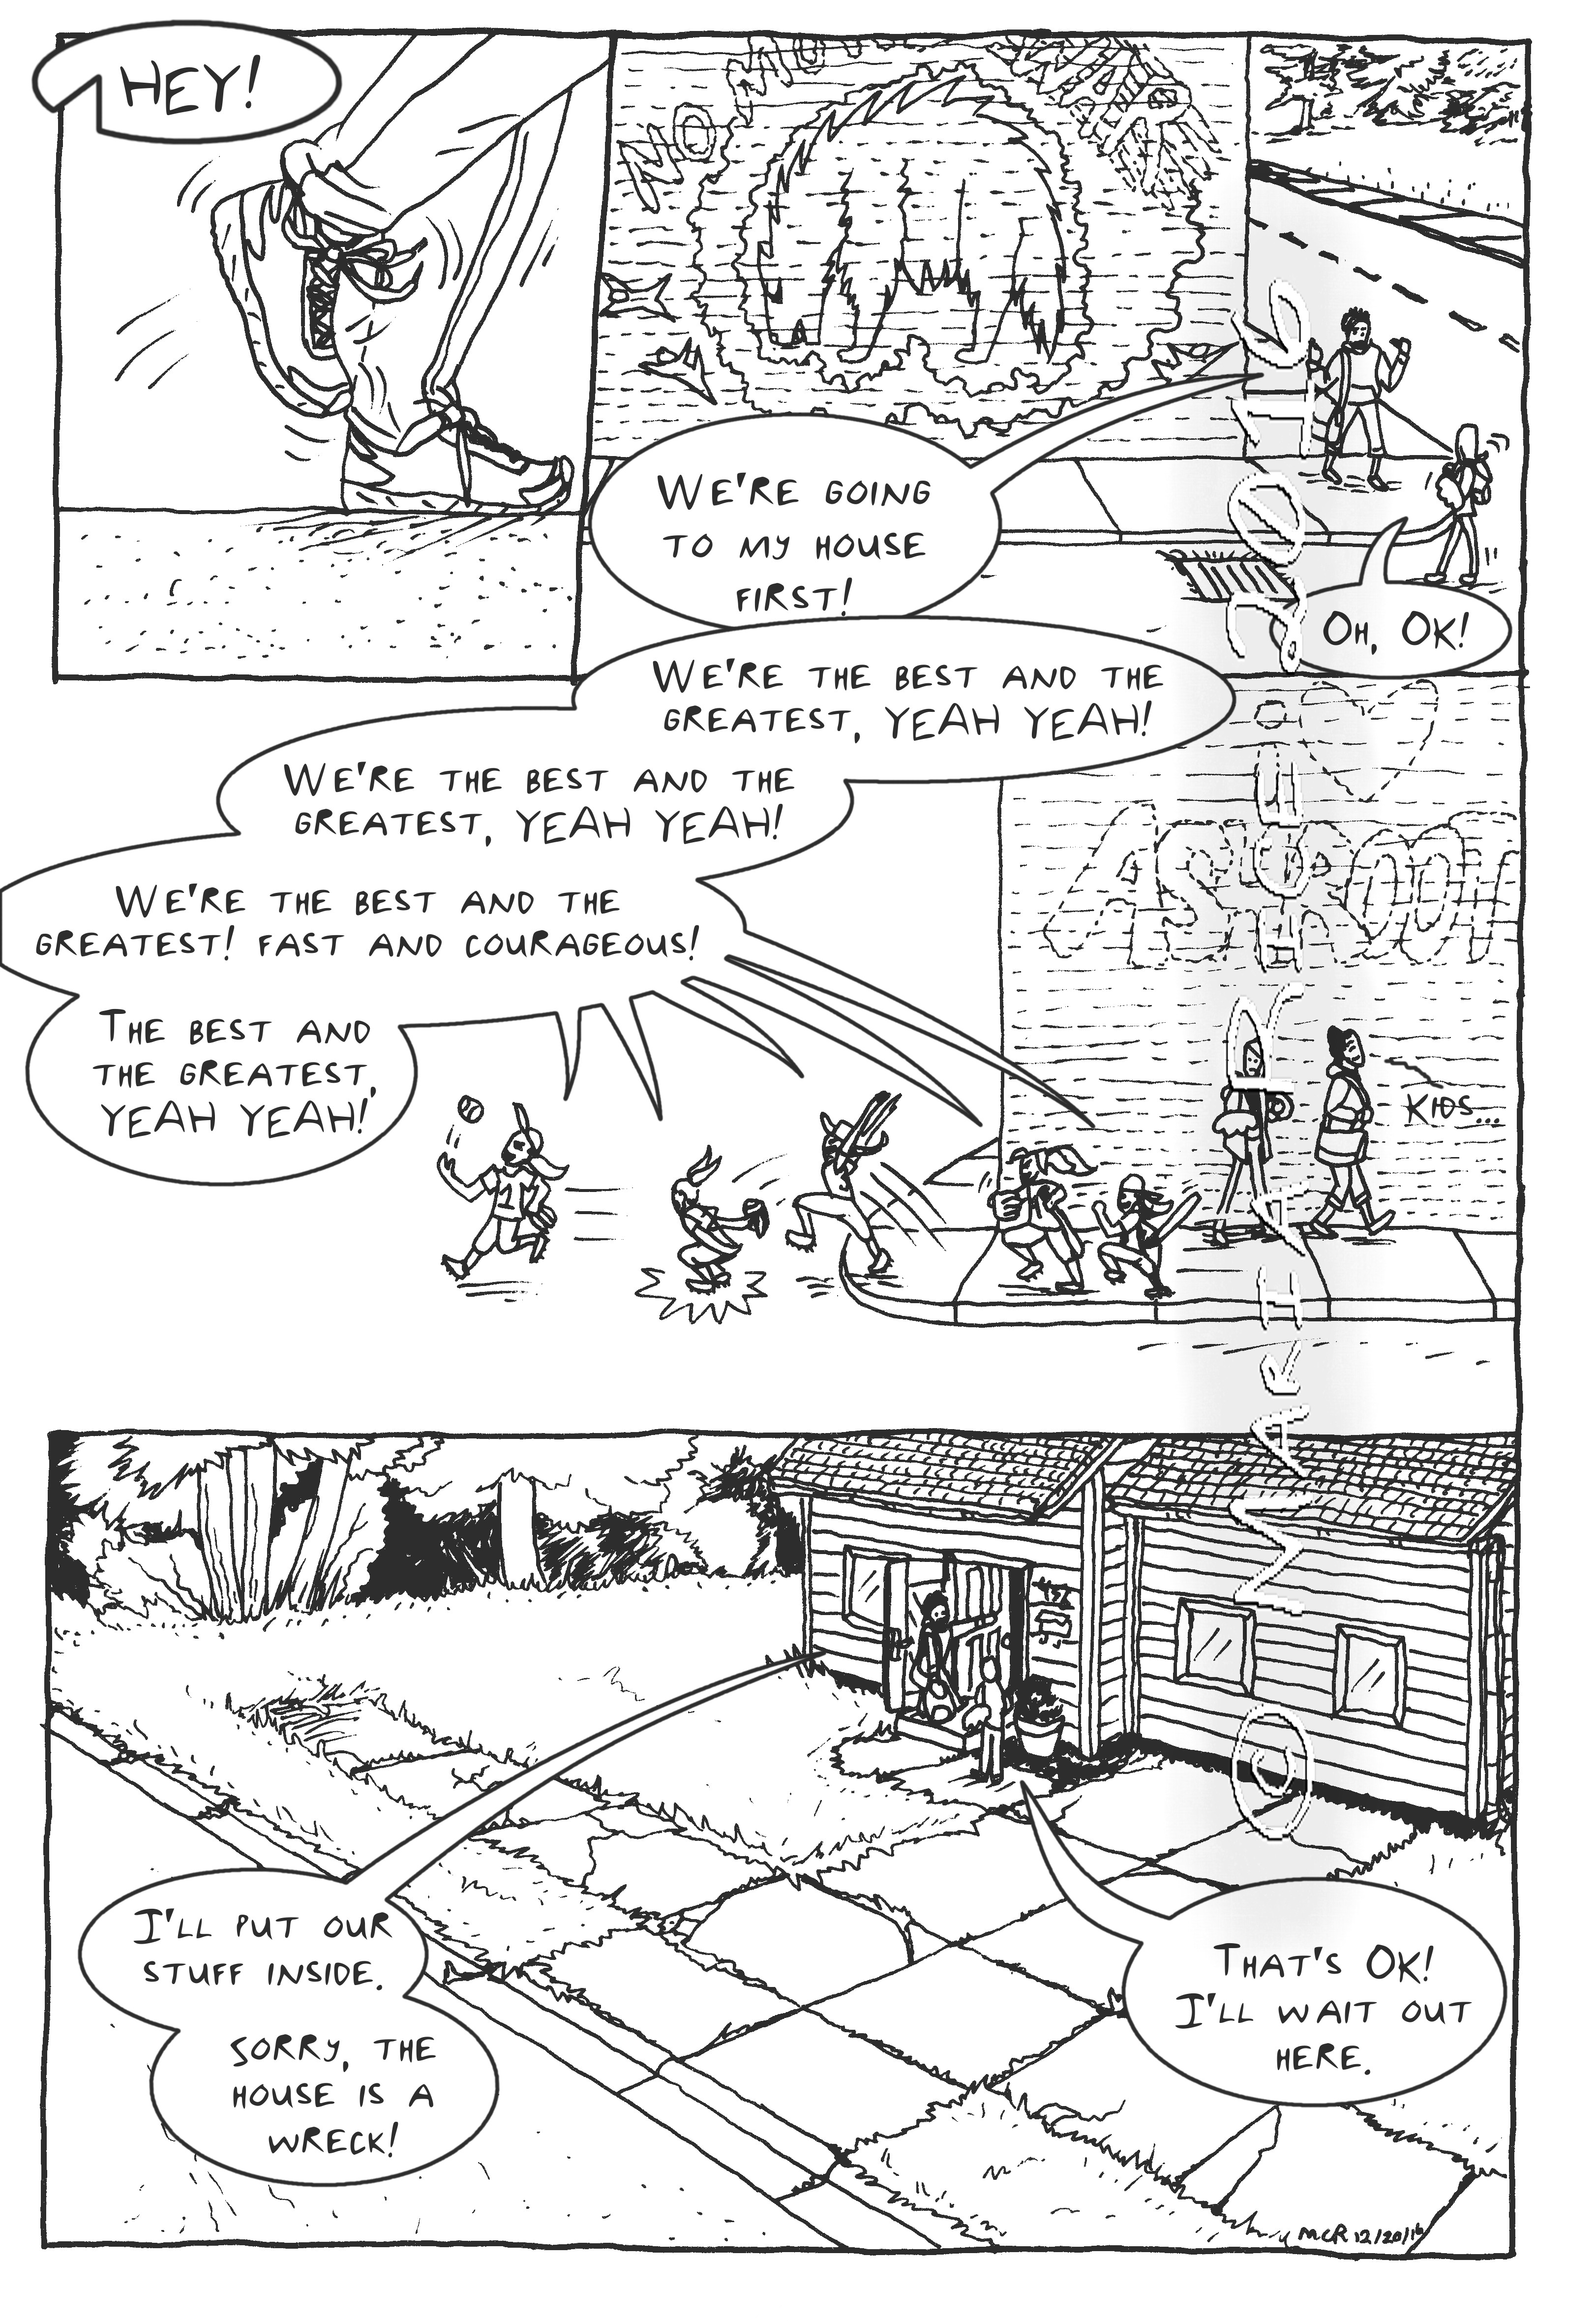 HEY!
NO
WE'RE GOING
TO MY HOUSE
FIRST!
OH, OK!
WE'RE THE BEST AND THE
GREATEST, YEAH YEAH!
WE'RE THE BEST AND THE
GREATEST, YEAH YEAH!
WE'RE THE BEST AND THE
GREATEST! FAST AND COURAGEOUS!
THE BEST AND
THE GREATEST,
YEAH YEAH!
KIDS...
1
I'LL PUT OUR
STUFF INSIDE.
SORRY, THE
HOUSE IS A
WRECK!
THAT'S OK!
I'LL WAIT OUT
HERE.
MCR 12/20/16
2016